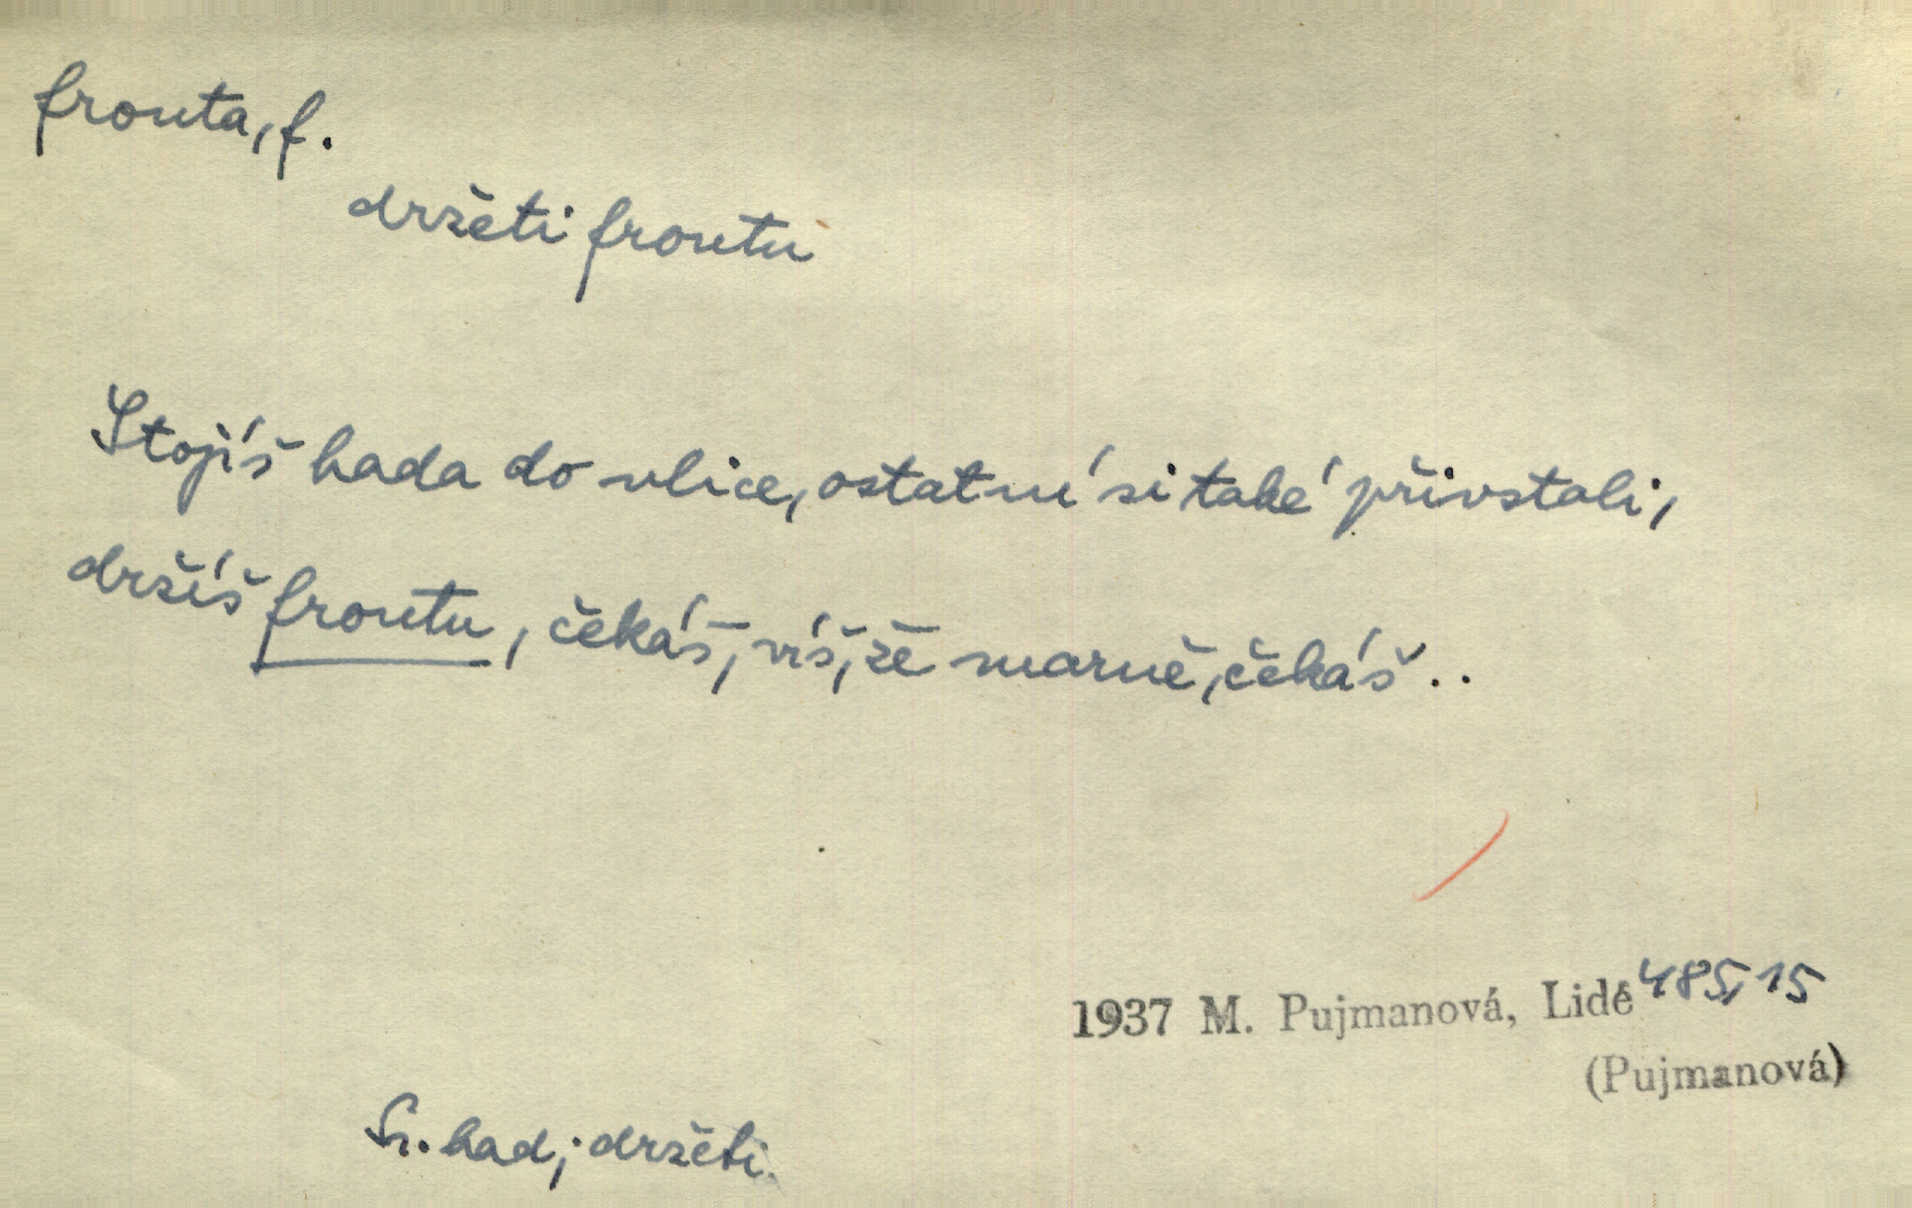 fronta, f.
držeti frontu
Stojíš hada do ulice, ostatní si také přivstali,
držíš frontu, čekáš, víš, že marně, čekáš..
1937 M. Pujmanová, Lidé 485, 15
(Pujmanová)
Sr. had; držeti.